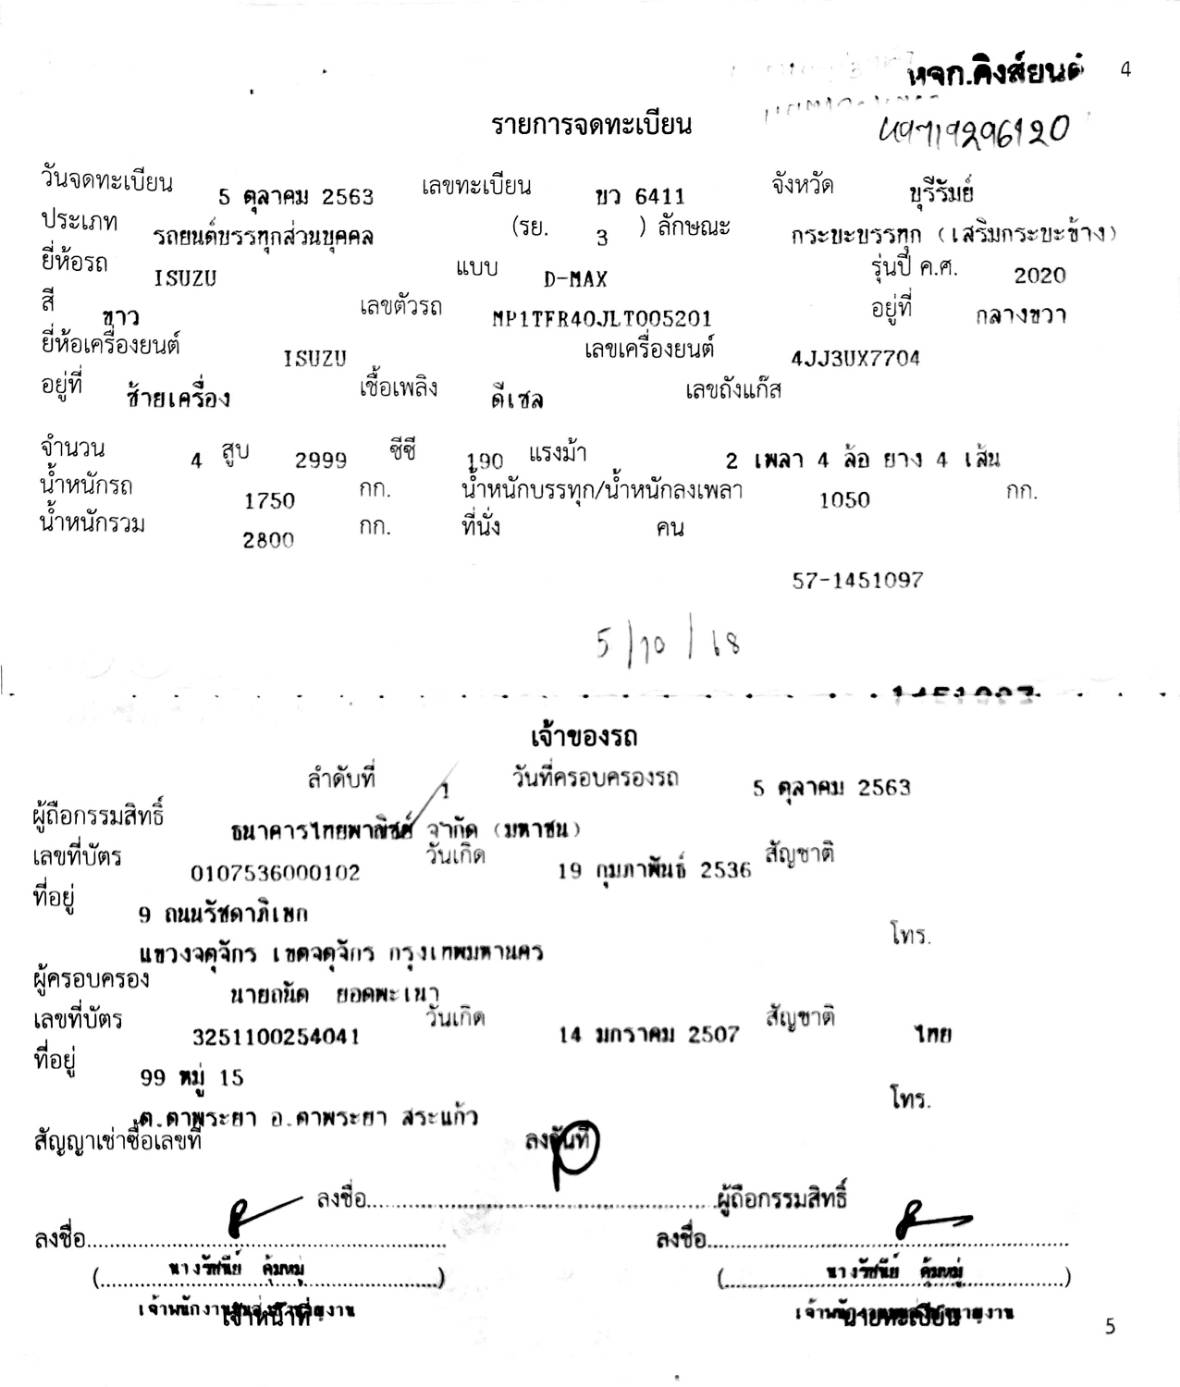 หจก.คิงส์ยนต์ 4
รายการจดทะเบียน
วันจดทะเบียน 5 ตุลาคม 2563 เลขทะเบียน ขว 6411 จังหวัด บุรีรัมย์
ประเภท รถยนต์บรรทุกส่วนบุคคล (รย. 3 ) ลักษณะ กระบะบรรทุก (เสริมกระบะข้าง)
ยี่ห้อรถ ISUZU แบบ D-MAX รุ่นปี ค.ศ. 2020
สี ขาว เลขตัวรถ MP1TFR40JLT005201 อยู่ที่ กลางขวา
ยี่ห้อเครื่องยนต์ ISUZU เลขเครื่องยนต์ 4JJ3UX7704
อยู่ที่ ซ้ายเครื่อง เชื้อเพลิง ดีเซล เลขถังแก๊ส
จำนวน 4 สูบ 2999 ซีซี 190 แรงม้า 2 เพลา 4 ล้อ ยาง 4 เส้น
น้ำหนักรถ 1750 กก. น้ำหนักบรรทุก/น้ำหนักลงเพลา 1050 กก.
น้ำหนักรวม 2800 กก. ที่นั่ง คน
57-1451097
5/10/68
1451097
เจ้าของรถ
ลำดับที่ 1 วันที่ครอบครองรถ 5 ตุลาคม 2563
ผู้ถือกรรมสิทธิ์ ธนาคารไทยพาณิชย์ จำกัด (มหาชน)
เลขที่บัตร 0107536000102 วันเกิด 19 กุมภาพันธ์ 2536 สัญชาติ
ที่อยู่ 9 ถนนรัชดาภิเษก
แขวงจตุจักร เขตจตุจักร กรุงเทพมหานคร โทร.
ผู้ครอบครอง นายถนัด ยอดพะเนา
เลขที่บัตร 3251100254041 วันเกิด 14 มกราคม 2507 สัญชาติ ไทย
ที่อยู่ 99 หมู่ 15
ต.ตาพระยา อ.ตาพระยา สระแก้ว โทร.
สัญญาเช่าซื้อเลขที่ ลงวันที่
ลงชื่อ ผู้ถือกรรมสิทธิ์
ลงชื่อ ลงชื่อ
(นางรัชนีย์ คุ้มหมู่) (นางรัชนีย์ คุ้มหมู่)
เจ้าพนักงานขนส่งชำนาญงาน เจ้าพนักงานขนส่งชำนาญงาน
เจ้าหน้าที่ นายทะเบียน
5